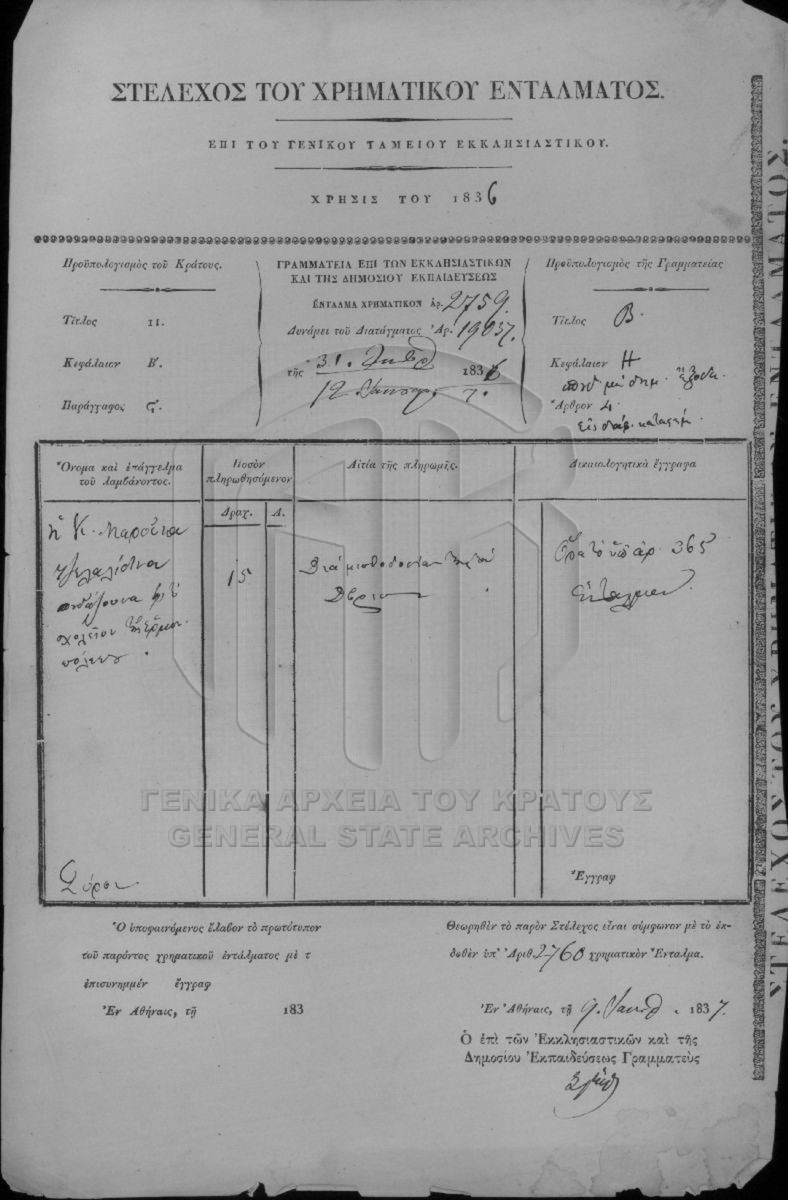 ΣΤΕΛΕΧΟΣ ΤΟΥ ΧΡΗΜΑΤΙΚΟΥ ΕΝΤΑΛΜΑΤΟΣ.
ΕΠΙ ΤΟΥ ΓΕΝΙΚΟΥ ΤΑΜΕΙΟΥ ΕΚΚΛΗΣΙΑΣΤΙΚΟΥ.
ΧΡΗΣΙΣ ΤΟΥ 1836
Προϋπολογισμὸς τοῦ Κράτους.
Τίτλος 11.
Κεφάλαιον Β′.
Παράγραφος ς′.
ΓΡΑΜΜΑΤΕΙΑ ΕΠΙ ΤΩΝ ΕΚΚΛΗΣΙΑΣΤΙΚΩΝ
ΚΑΙ ΤΗΣ ΔΗΜΟΣΙΟΥ ΕΚΠΑΙΔΕΥΣΕΩΣ
ΕΝΤΑΛΜΑ ΧΡΗΜΑΤΙΚΟΝ ἀρ. 2759.
Δυνάμει τοῦ Διατάγματος Ἀρ. 19037.
τῆς 31. 1836
12 7.
Προϋπολογισμὸς τῆς Γραμματείας
Τίτλος Β.
Κεφάλαιον Η
Ἄρθρον 4.
Ὄνομα καὶ ἐπάγγελμα
τοῦ λαμβάνοντος.
Ποσὸν
πληρωθησόμενον
Αἰτία τῆς πληρωμῆς.
Δικαιολογητικὰ ἔγγραφα
Δραχ. Λ.
ἡ Κ.
σχολεῖον
πόλεως.
15
Διὰ μισθοδοσίαν
ἀρ. 365
Σύρου
Ἔγγραφ
Ὁ ὑποφαινόμενος ἔλαβον τὸ πρωτότυπον
τοῦ παρόντος χρηματικοῦ ἐντάλματος μὲ τ
ἐπισυνημμέν ἔγγραφ
Ἐν Ἀθήναις, τῇ 183
Θεωρηθὲν τὸ παρὸν Στέλεχος εἶναι σύμφωνον μὲ τὸ ἐκ-
δοθὲν ὑπ' Ἀριθ. 2760 χρηματικὸν Ἔνταλμα.
Ἐν Ἀθήναις, τῇ 9. 1837.
Ὁ ἐπὶ τῶν Ἐκκλησιαστικῶν καὶ τῆς
Δημοσίου Ἐκπαιδεύσεως Γραμματεὺς
ΓΕΝΙΚΑ ΑΡΧΕΙΑ ΤΟΥ ΚΡΑΤΟΥΣ
GENERAL STATE ARCHIVES
ΣΤΕΛΕΧΟΣ ΤΟΥ ΧΡΗΜΑΤΙΚΟΥ ΕΝΤΑΛΜΑΤΟΣ.